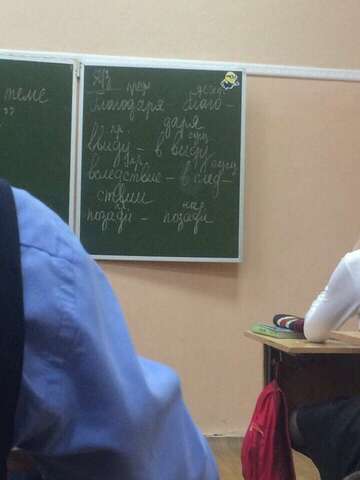 теме
Д/з предл. дееприч.
благодаря - благо-
даря
пр. сущ
ввиду - в виду
пр. сущ
вследствие - в след-
ствии
пр. нар
позади - позади